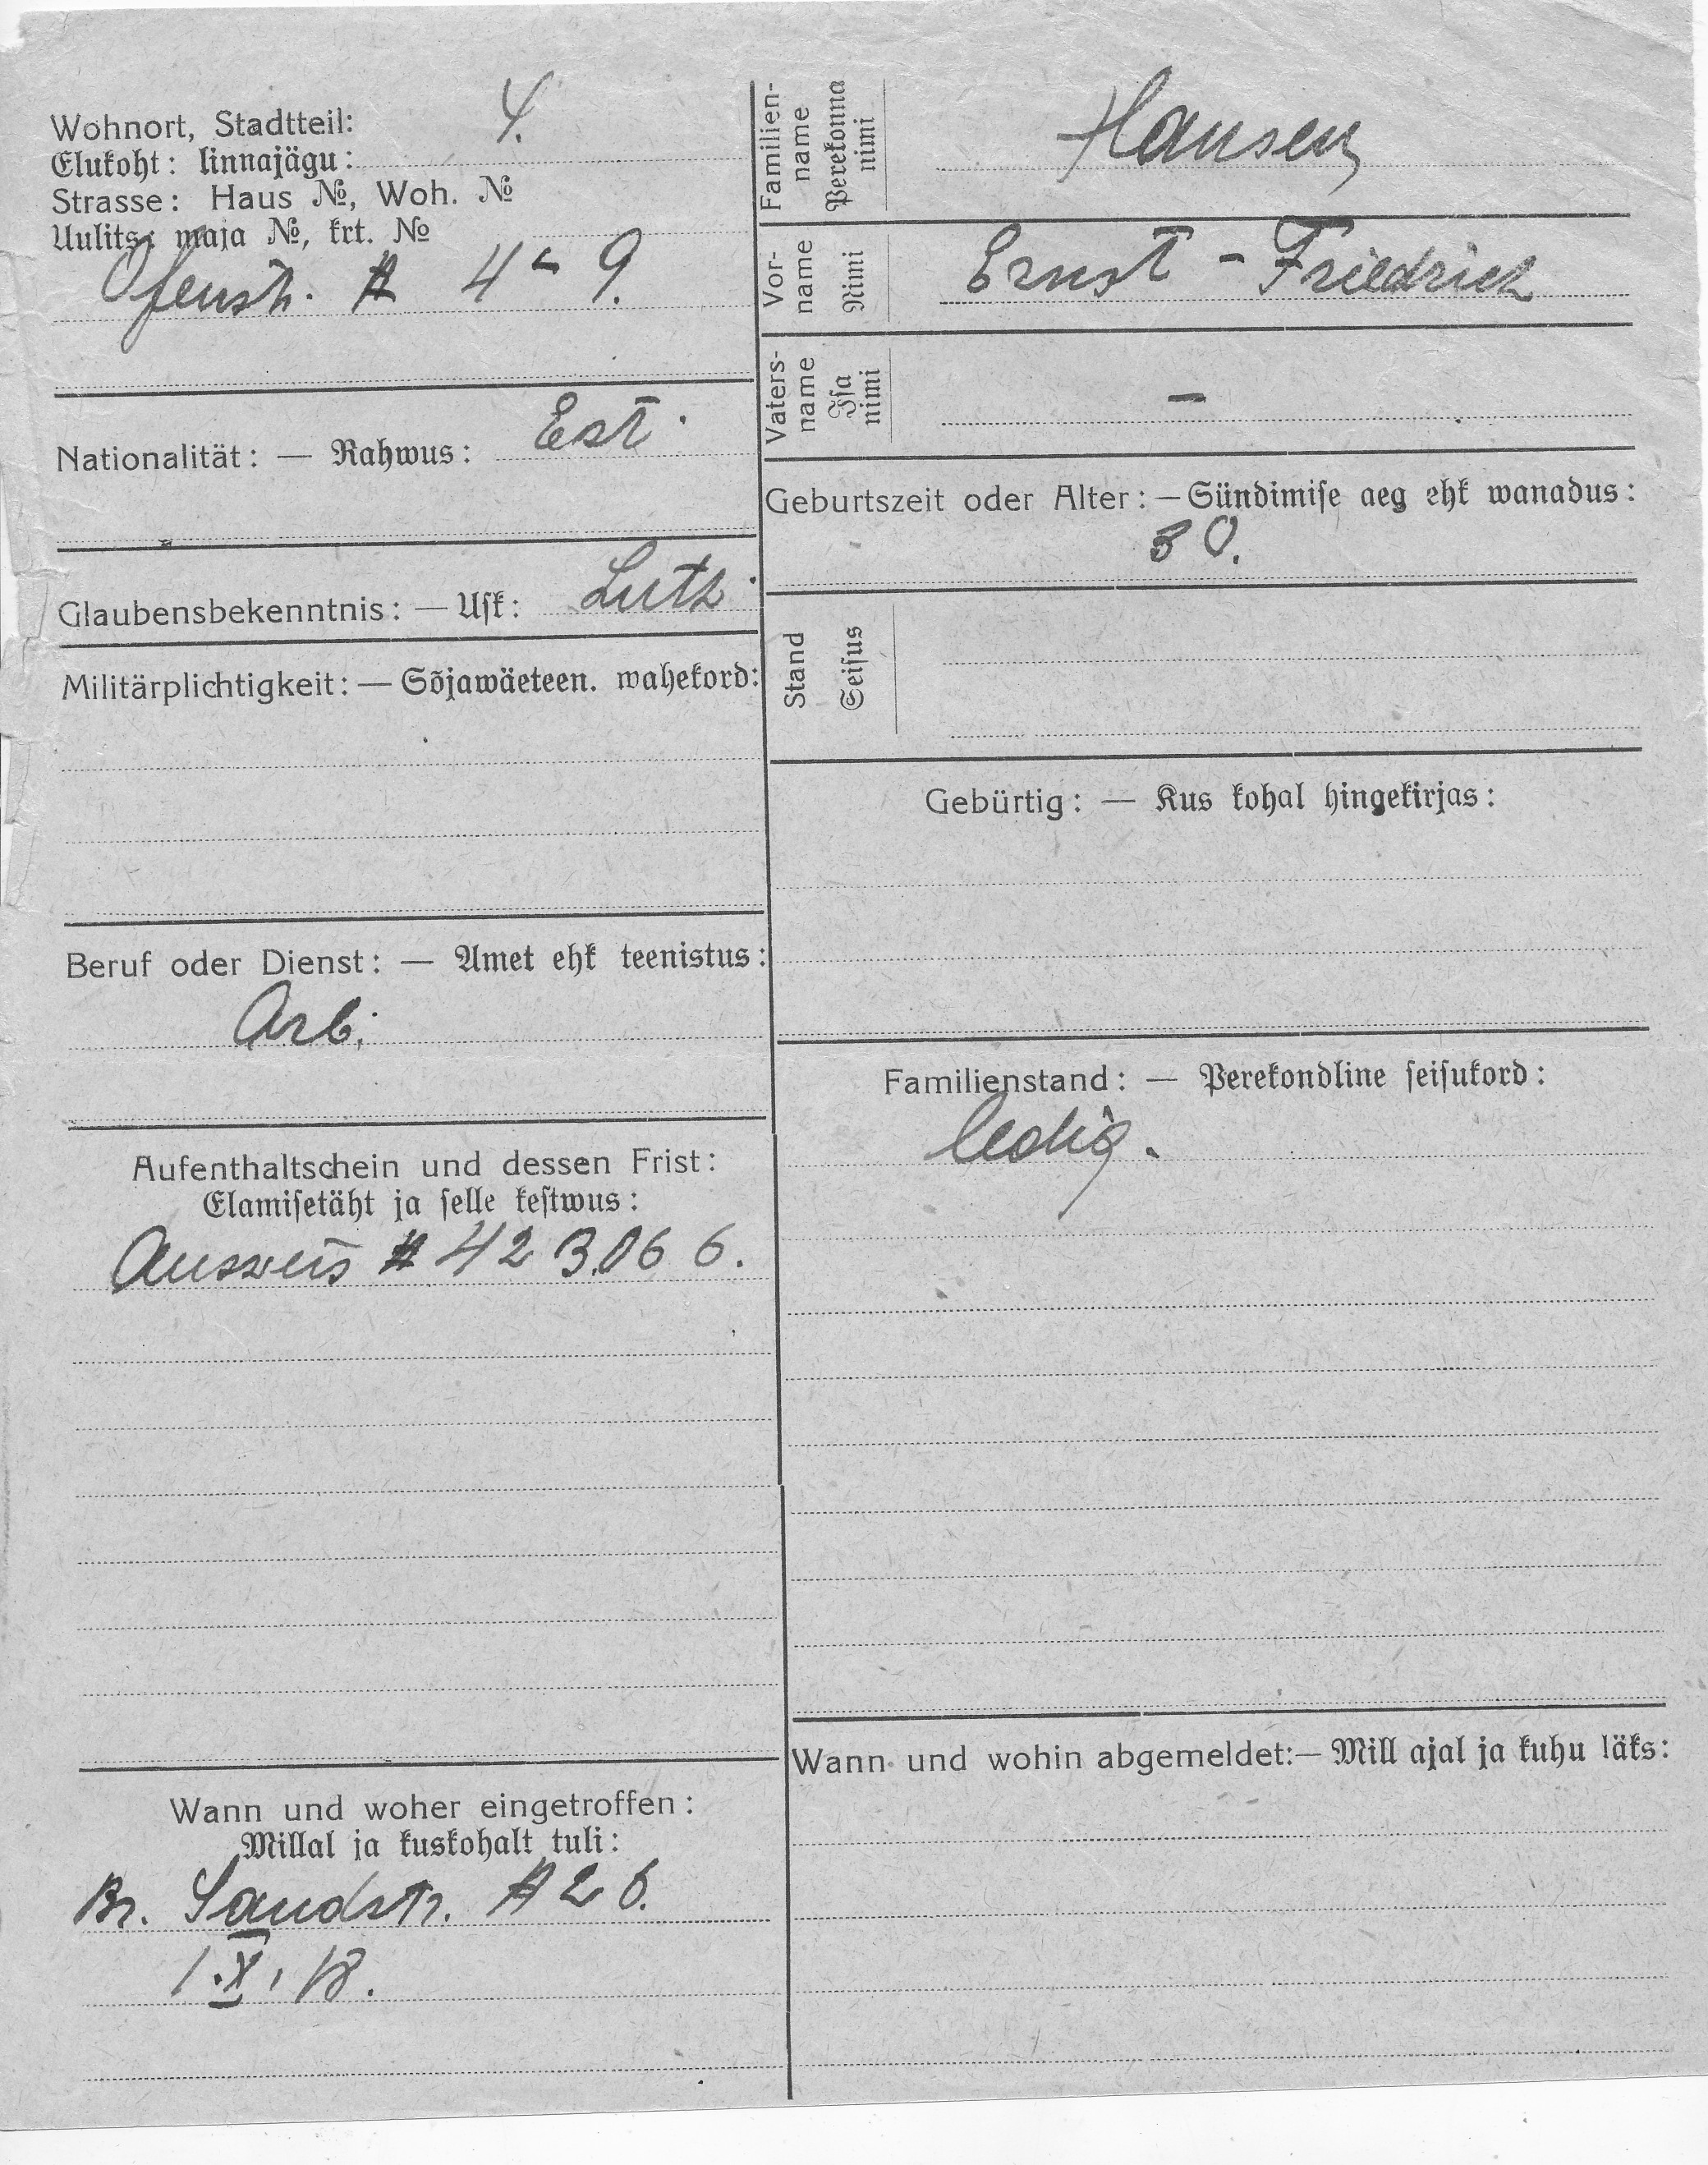 Wohnort, Stadtteil: 4.
Elukoht: linnajägu:
Strasse: Haus №, Woh. №
Uulits: maja №, krt. №
Ofenstr. № 4 - 9.
Nationalität: — Rahwus: Est.
Glaubensbekenntnis: — Usk: Luth.
Militärplichtigkeit: — Sõjawäeteen. wahekord:
Beruf oder Dienst: — Amet ehk teenistus:
Arb.
Aufenthaltschein und dessen Frist:
Elamisetäht ja selle kestwus:
Ausweis № 423066.
Wann und woher eingetroffen:
Millal ja kuskohalt tuli:
Br. Sandstr. № 26.
1.X.18.
Familien-
name
Perekonna
nimi
Hansen
Vor-
name
Nimi
Ernst - Friedrich
Vaters-
name
Isa
nimi
—
Geburtszeit oder Alter: — Sündimise aeg ehk wanadus:
30.
Stand
Seisus
Gebürtig: — Kus kohal hingekirjas:
Familienstand: — Perekondline seisukord:
ledig.
Wann und wohin abgemeldet: — Mill ajal ja kuhu läks: